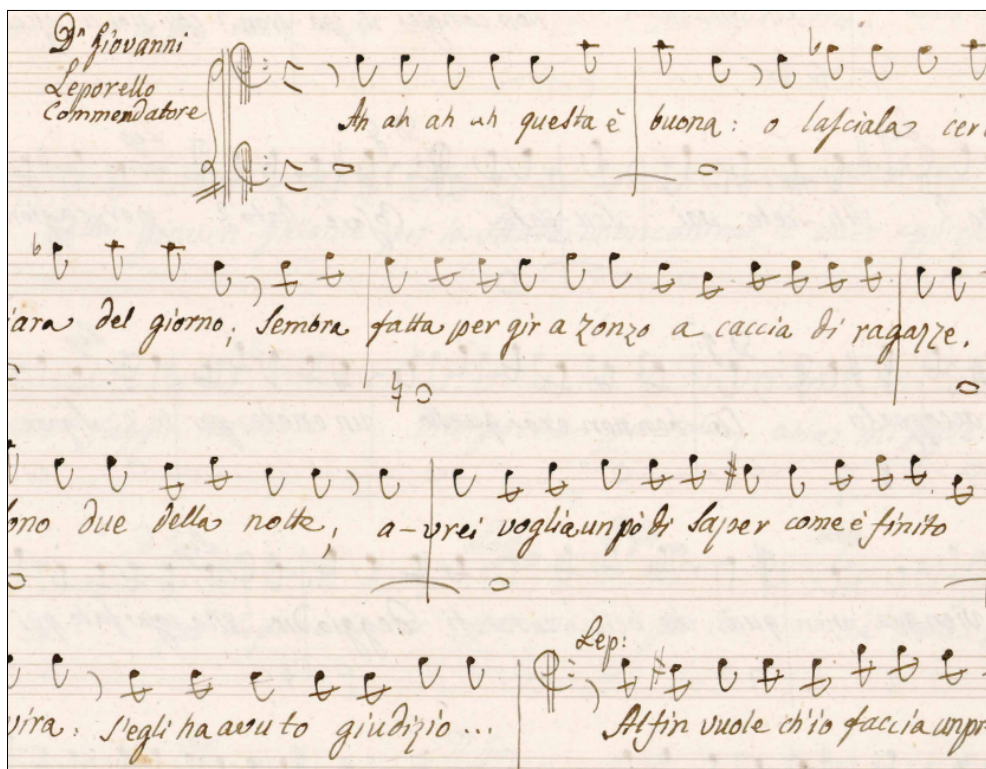 Dn Giovanni
Leporello
Commendatore
Ah ah ah ah questa è buona: o lasciala cer
iara del giorno; Sembra fatta per gir a zonzo a caccia di ragazze.
ono due della notte; a-vrei voglia un pò di saper come è finito
Lep:
vira: s'egli ha avuto giudizio... Alfin vuole ch'io faccia un pr